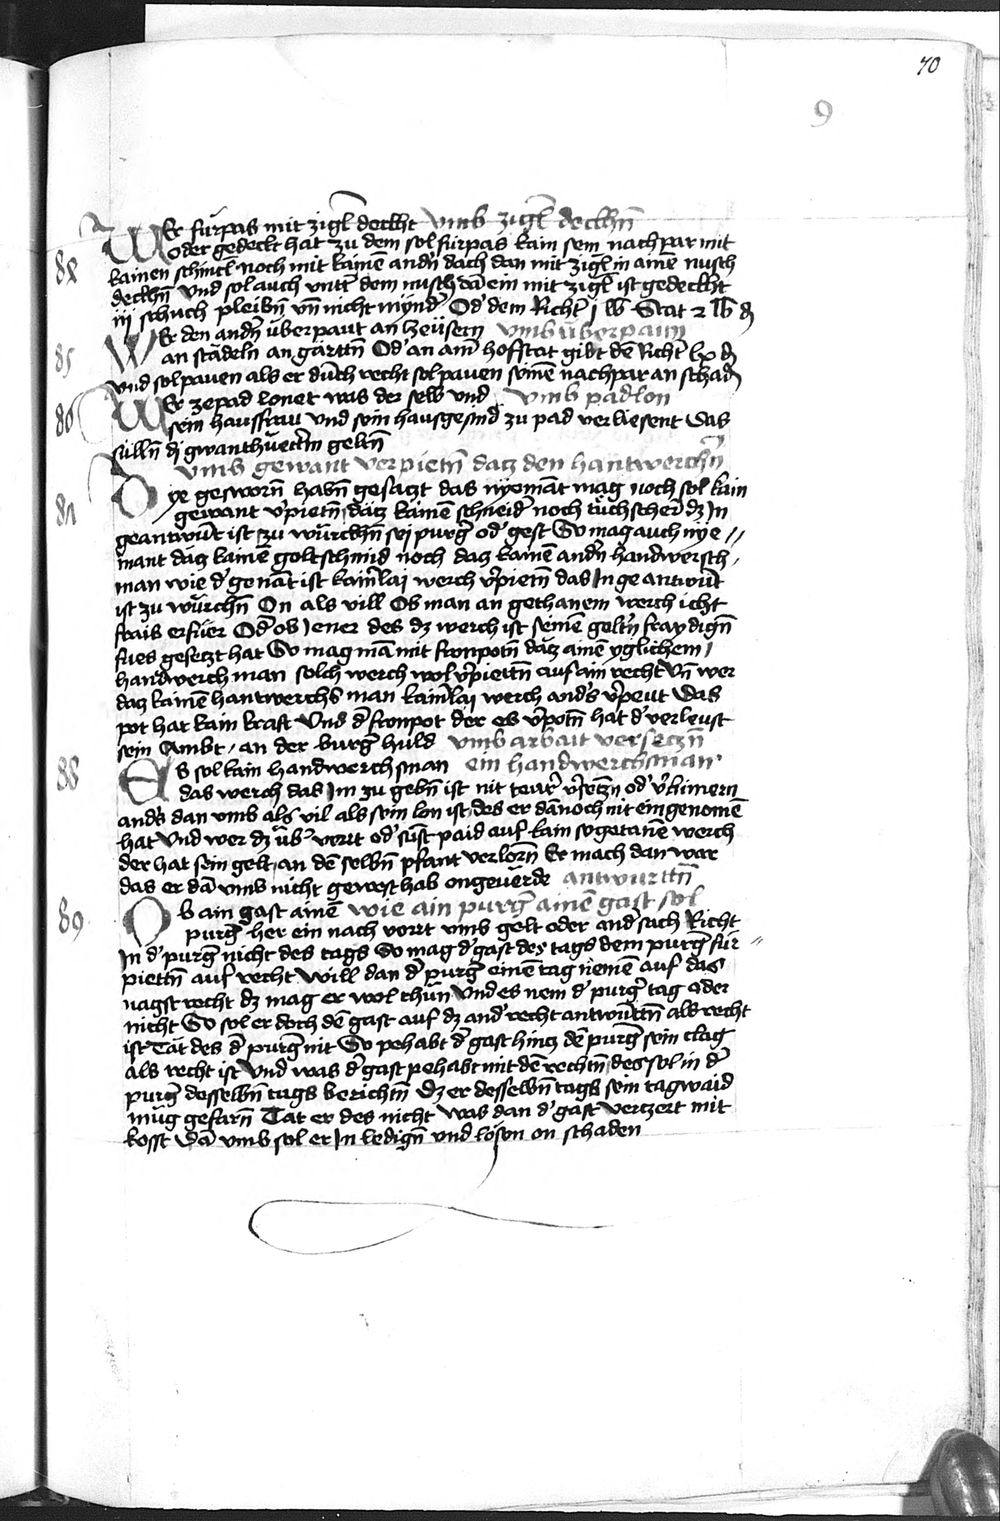 70
9
WEr fürpas mit zigl̄ deckht vmb zigl̄ deckhn̄
84 oder gedeckt hat zu dem sol fürpas kain sein nachpar mit
kainen schintl̄ noch mit kainē andn̄ dach dan mit zigl̄ in ainē nusch
deckhn̄ Vnd sol auch vntt̄ dem nusch dā ein mit zigl̄ ist gedeckht
iij schuch pleibn̄ vn̄ nicht mynd̄ Od̄ dem Richt̄ j lb Stat 2 lb ₰
WEr den andn̄ überpaut an heüsern vmb überpaün
85 an städeln an gärttn̄ Od̄ an am̄ hofstat gidt dē Richt̄ lx ₰
vnd sol pauen als er durch recht sol pauen seinē nachpar an schadn̄
WEr ze pad lonet was der selb vnd vmb padlon
86 sein hausfrau vnd sein hausgesind zu pad verliesent Das
sülln̄ di gwanthüettn̄ geltn̄
vmb gewant verpietn̄ datz den hantwerchn̄
87 Dye gesworn̄ habn̄ gesatzt das nyemāt mag noch sol kain
gewant v̄pietn̄ datz kainē schneid̄ noch tuchscher̄ dz In
geantwūrt ist zu würckhn̄ sej purḡ od̄ gest So mag auch nye //
mant datz kainē goltschmid noch datz kainē andn̄ handwersch /
man wie d̄ genāt ist kainlaj werch v̄pietn̄ das In geantwūrt
ist zu würchn̄ On als vill Ob man an gethanem werch icht
frais erfüer Od̄ ob jener des dz werch ist seinē geltn̄ fraydign̄
fues gesetzt hat So mag mā mit fronpotn̄ datz ainē yglichem /
handwerch man solch werch wol v̄piettn̄ auf ain recht Vn̄ wer
datz kainē hantwerchs man kainlaj werch and̄s v̄peut Das
pot hat kain kraft Vnd d̄ fronpot der es v̄potn̄ hat d̄ verleust
sein Ambt / an der burḡ huld vmb arbait versetzn̄
88 ES sol kain handwerchsman ein handwerchsman
das werch das Im zu gebn̄ ist nit teur̄ v̄setzn̄ od̄ v̄kümern
and̄s dan vmb als vil als sein lon ist des er dānoch nit eingenomē
hat Vnd wer dz üb̄ vertt od̄ süst paid auf kain sogetanē werch
der hat sein gelt an dē selbn̄ pfant verlorn̄ Er mach dan war
das er dā vmb nicht gewest hab ongeuerde antwurttn̄
89 OB ain gast ainē wie ain purḡ ainē gast sol
purḡ her ein nach vortt vmb gelt oder and̄ sach Richt
In d̄ purḡ nicht des tags So mag d̄ gast des tags dem purḡ für //
piettn̄ auf recht Will dan d̄ purḡ einē tag nemē auf das
nagst recht dz mag er wol thün Vnd es nem d̄ purḡ tag oder
nicht So sol er doch dē gast auf dz and̄ recht antwürttn̄ als recht
ist Tät des d̄ purḡ nit So pehabt d̄ gast hintz dē purḡ sein clag
als recht ist Vnd was d̄ gast pehabt mit dē rechtn̄ des sol in d̄
purḡ desselbn̄ tags berichtn̄ Dz er desselbn̄ tags sein tagwaid
müg gefarn̄ Tät er des nicht was dan d̄ gast vertzert mit
kosst Dā vmb sol er In ledign̄ vnd lösen on schaden